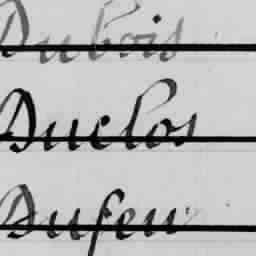 Dubois
Duclos
Dufeu